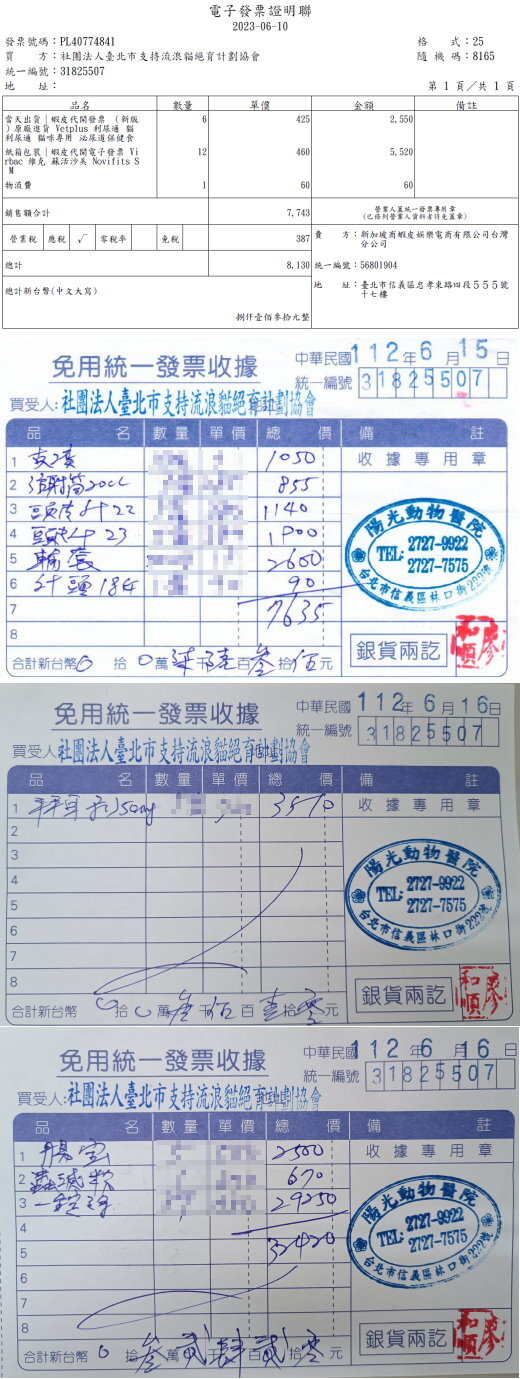 電子發票證明聯
2023-06-10
發票號碼：PL40774841
格 式：25
買 方：社團法人臺北市支持流浪貓絕育計劃協會
隨 機 碼：8165
統一編號：31825507
地 址：
第 1 頁／共 1 頁
品名 數量 單價 金額 備註
當天出貨｜蝦皮代開發票 （新版 6 425 2,550
）原廠進貨 Vetplus 利尿通 貓
利尿通 貓咪專用 泌尿道保健食
紙箱包裝｜蝦皮代開電子發票 Vi 12 460 5,520
rbac 維克 蘇活沙美 Novifits S
M
物流費 1 60 60
銷售額合計 7,743
營業人蓋統一發票專用章
(已條列營業人資料者得免蓋章)
營業稅 應稅 √ 零稅率 免稅 387
賣 方：新加坡商蝦皮娛樂電商有限公司台灣
分公司
總計 8,130
統一編號：56801904
總計新台幣(中文大寫)
捌仟壹佰參拾元整
地 址：臺北市信義區忠孝東路四段５５５號
十七樓
免用統一發票收據
中華民國112年6月15日
統一編號 31825507
買受人:社團法人臺北市支持流浪貓絕育計劃協會
品名 數量 單價 總價 備註
1 1050
收據專用章
2 20cc 855
3 頭皮針22 1140
4 頭皮針23 1900
5 2600
6 針頭18G 90
7 7635
8
陽光動物醫院
TEL: 2727-9922
2727-7575
台北市信義區林口街222號
銀貨兩訖
廖和順
合計新台幣0拾0萬柒千陸百叁拾伍元
免用統一發票收據
中華民國112年6月16日
統一編號 31825507
買受人:社團法人臺北市支持流浪貓絕育計劃協會
品名 數量 單價 總價 備註
1 50mg 3510
收據專用章
2
3
4
5
6
7
8
陽光動物醫院
TEL: 2727-9922
2727-7575
台北市信義區林口街222號
銀貨兩訖
廖和順
合計新台幣0拾0萬叁千伍百壹拾零元
免用統一發票收據
中華民國112年6月16日
統一編號 31825507
買受人:社團法人臺北市支持流浪貓絕育計劃協會
品名 數量 單價 總價 備註
1 腸寶 2500
收據專用章
2 蟲滅 670
3 一錠 29250
4
5 32420
6
7
8
陽光動物醫院
TEL: 2727-9922
2727-7575
台北市信義區林口街222號
銀貨兩訖
廖和順
合計新台幣0拾叁萬貳千肆百貳拾零元